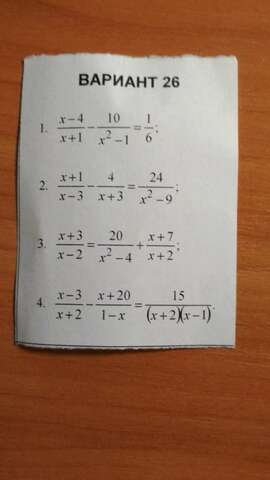 ВАРИАНТ 26
1. \frac{x-4}{x+1} - \frac{10}{x^2-1} = \frac{1}{6};
2. \frac{x+1}{x-3} - \frac{4}{x+3} = \frac{24}{x^2-9};
3. \frac{x+3}{x-2} = \frac{20}{x^2-4} + \frac{x+7}{x+2};
4. \frac{x-3}{x+2} - \frac{x+20}{1-x} = \frac{15}{(x+2)(x-1)}.